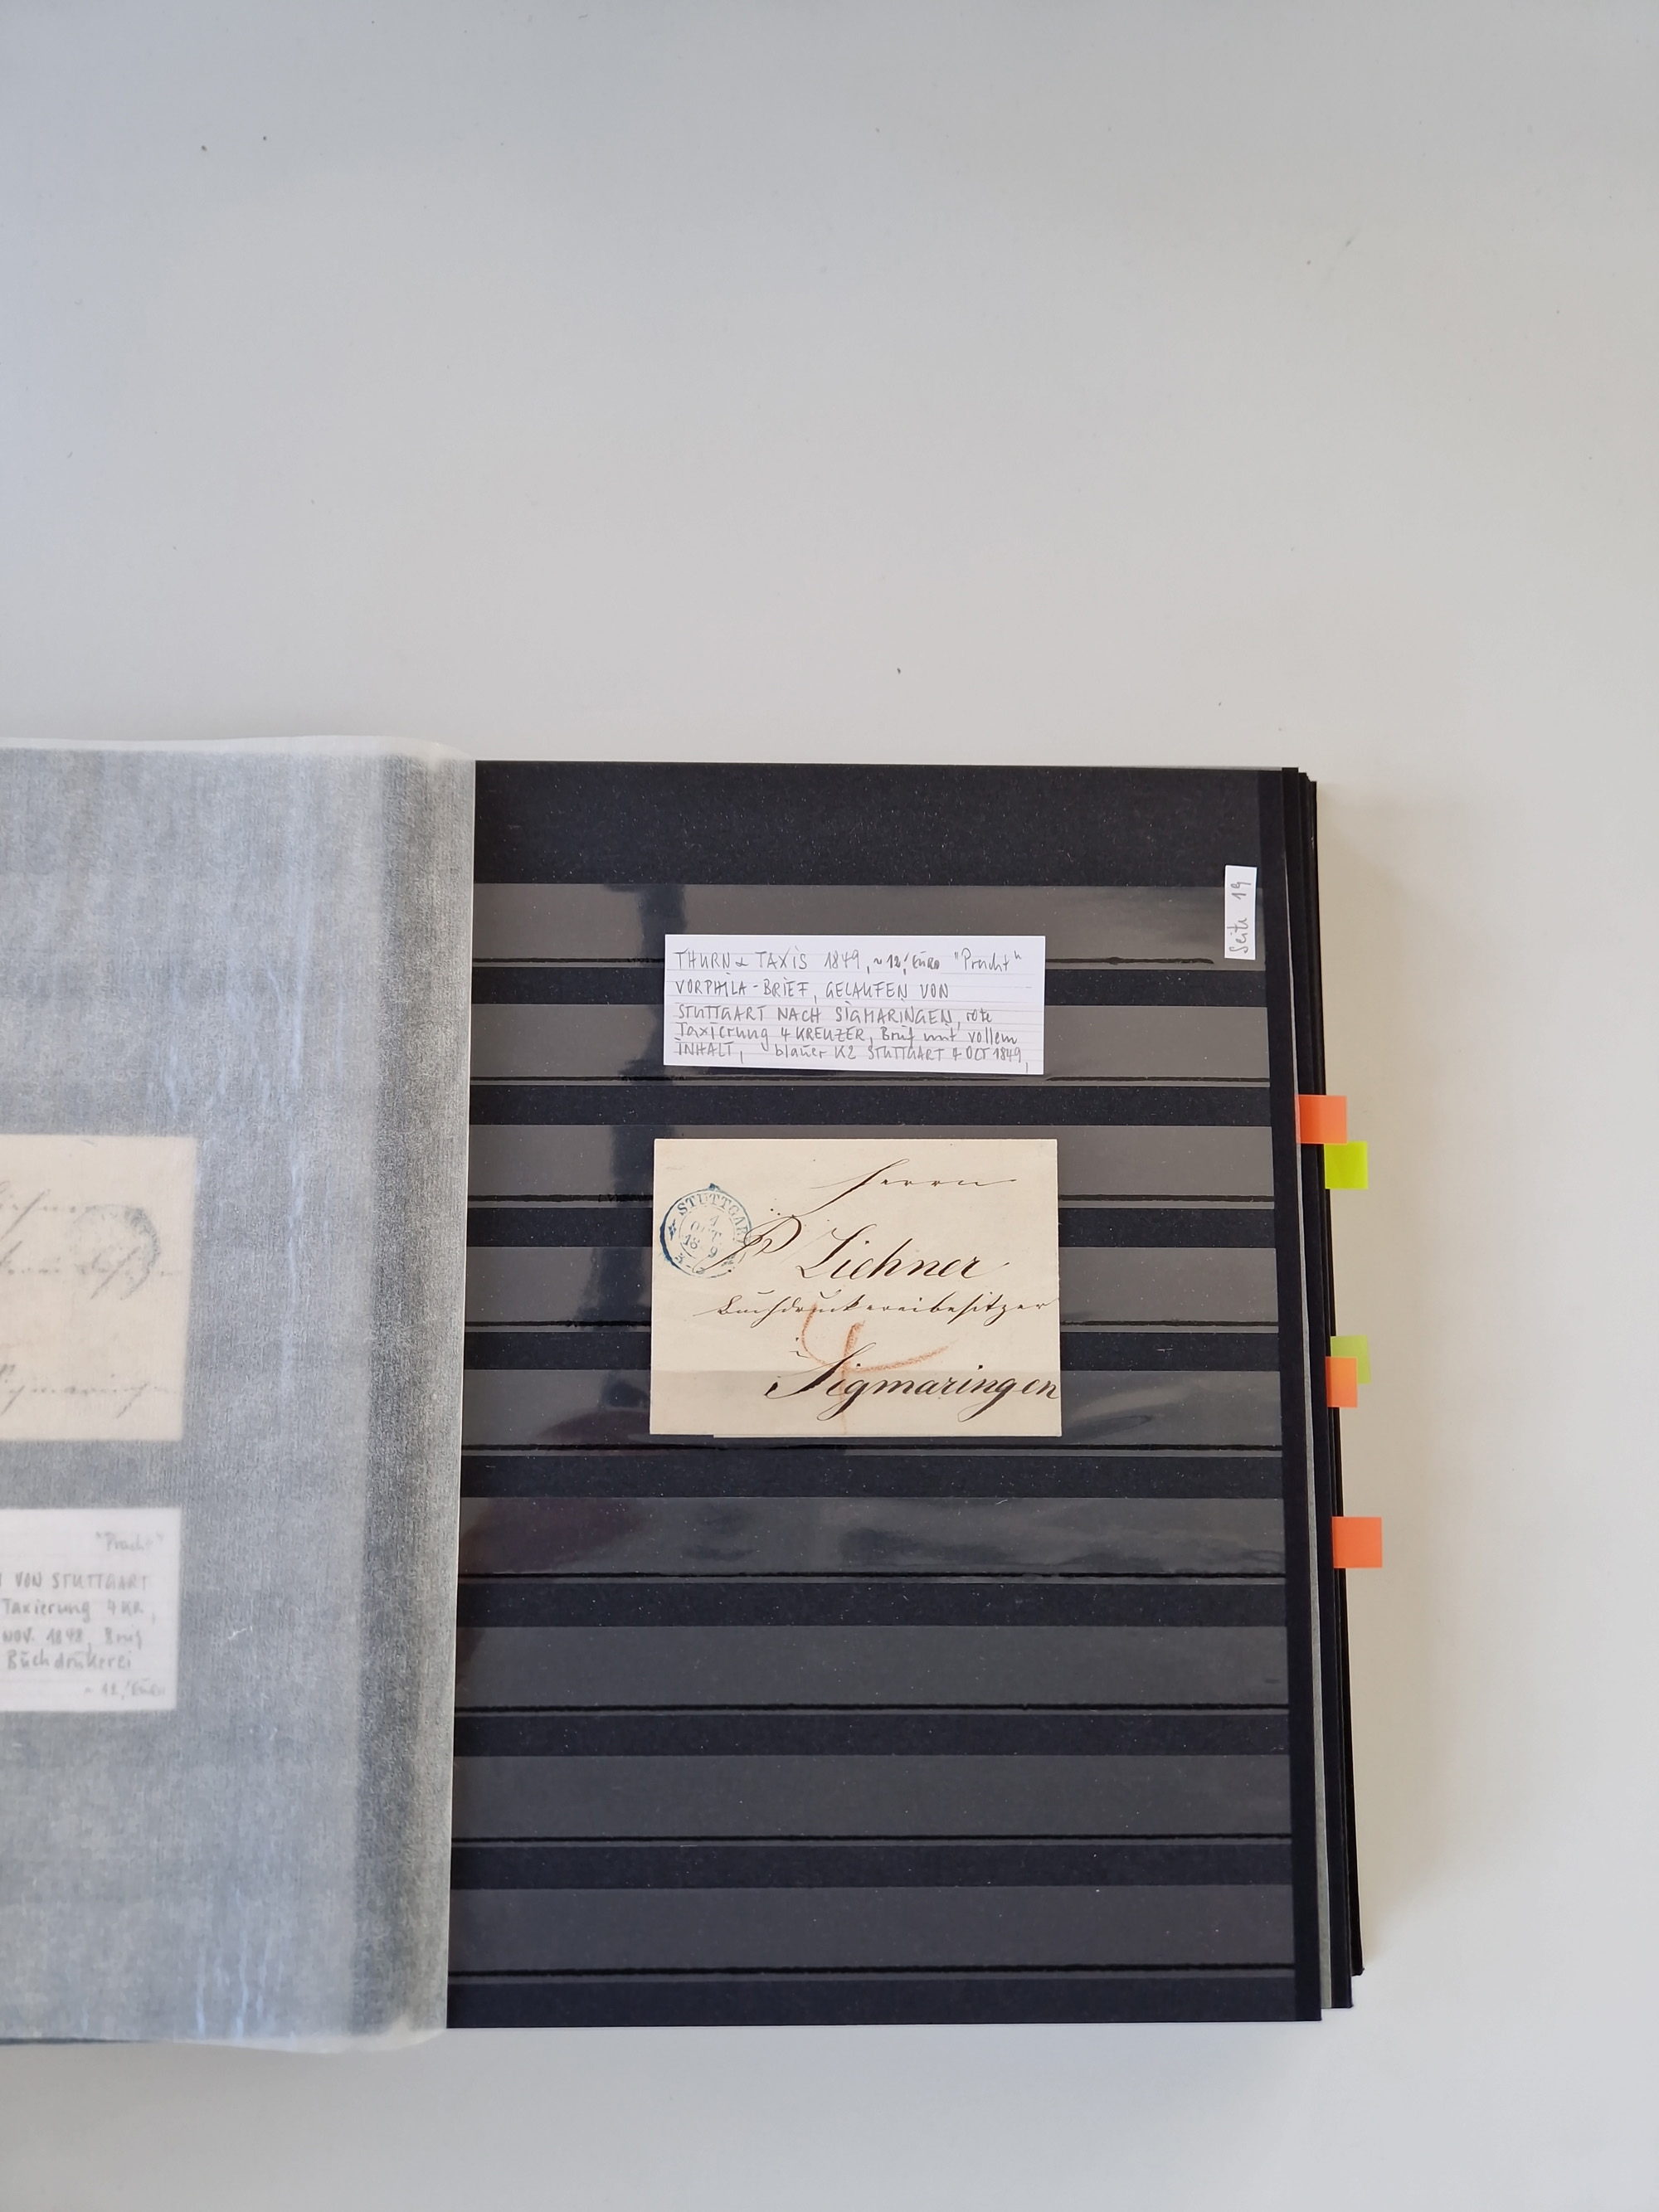 "Pracht"
VON STUTTGART
Taxierung 4 KR,
NOV. 1848, Brief
Buchdrukerei
~ 12,- Euro
Seite 19
THURN & TAXIS 1849, ~ 12,- Euro "Pracht"
VORPHILA-BRIEF, GELAUFEN VON
STUTTGART NACH SIGMARINGEN, rote
Taxierung 4 KREUZER, Brief mit vollem
INHALT, blauer K2 STUTTGART 4 OCT 1849,
STUTTGART
4
OCT
18 9
Herrn
P Liehner
Buchdruckereibesitzer
in
Sigmaringen
4